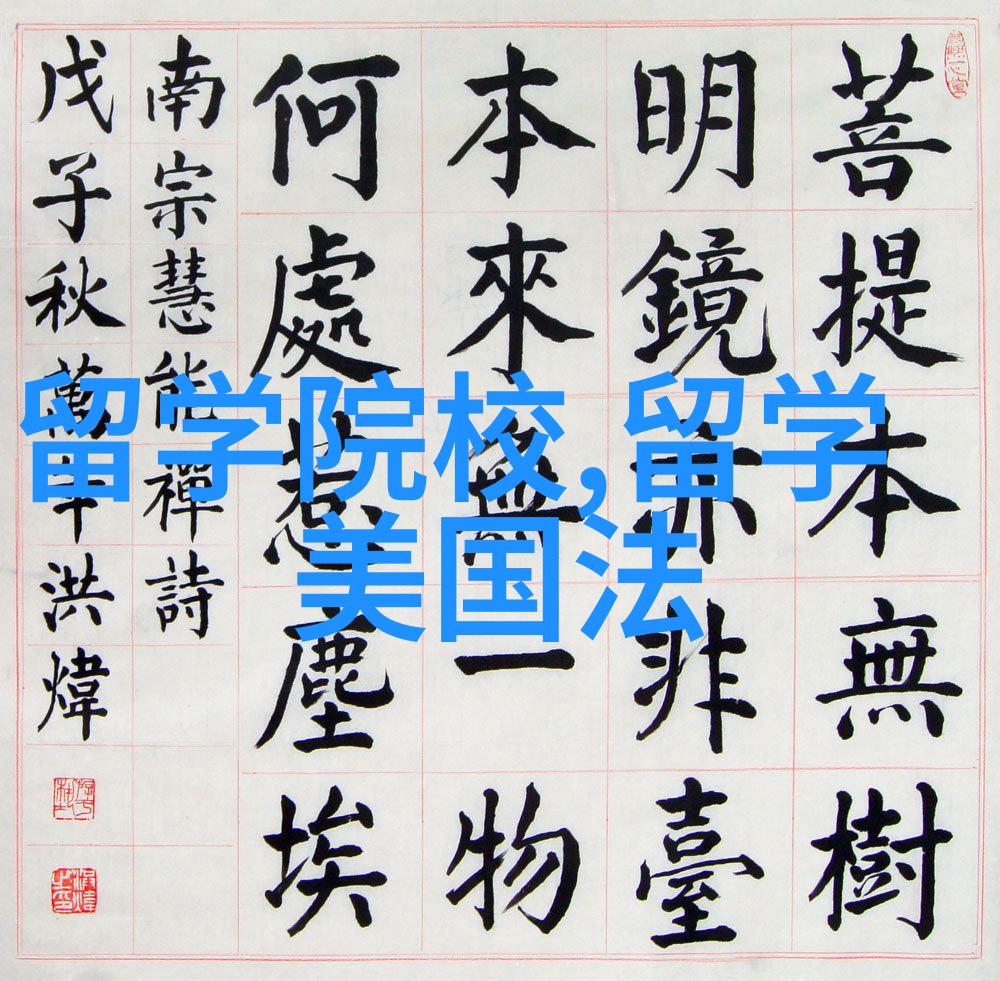 菩提本無樹
明鏡亦非臺
本來無一物
何處惹塵埃
南宗慧能禪詩
戊子秋萬洪煒
留学院校,留学
美国法